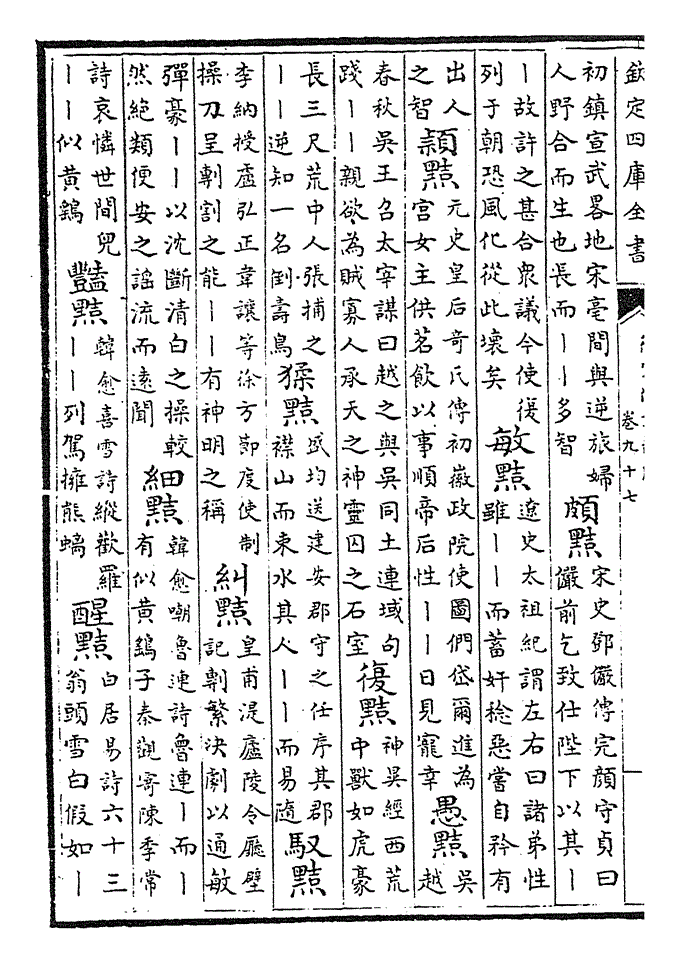 欽定四庫全書 卷九十七
初鎮宣武畧地宋亳間與逆旅婦
人野合而生也長而丨丨多智
頗黠
宋史鄧儼傳完顔守貞曰
儼前乞致仕陛下以其丨
丨故許之甚合衆議今使復
列于朝恐風化從此壞矣
敏黠
遼史太祖紀謂左右曰諸弟性
雖丨丨而蓄奸稔惡嘗自矜有
出人
之智
頴黠
元史皇后奇氏傳初徽政院使圖們岱爾進為
宫女主供茗飲以事順帝后性丨丨日見寵幸
愚黠
吳
越
春秋吳王召太宰謀曰越之與吳同土連域句
踐丨丨親欲為賊寡人承天之神靈囚之石室
復黠
神吳經西荒
中獸如虎豪
長三尺荒中人張捕之
丨丨逆知一名倒壽鳥
猱黠
盛均送建安郡守之任序其郡
襟山而束水其人丨丨而易隨
馭黠
李納授盧弘正韋讓等徐方節度使制
操刀呈剸割之能丨丨有神明之稱
糾黠
皇甫湜廬陵令廳壁
記剸繁決劇以通敏
彈豪丨丨以沈斷清白之操較
然絶類便安之謡流而遠聞
細黠
韓愈嘲魯連詩魯連丨而丨
有似黃鷂子秦觀寄陳季常
詩哀憐世間兒
丨丨似黃鷂
豔黠
韓愈喜雪詩縱歡羅
丨丨列駕擁熊螭
醒黠
白居易詩六十三
翁頭雪白假如丨